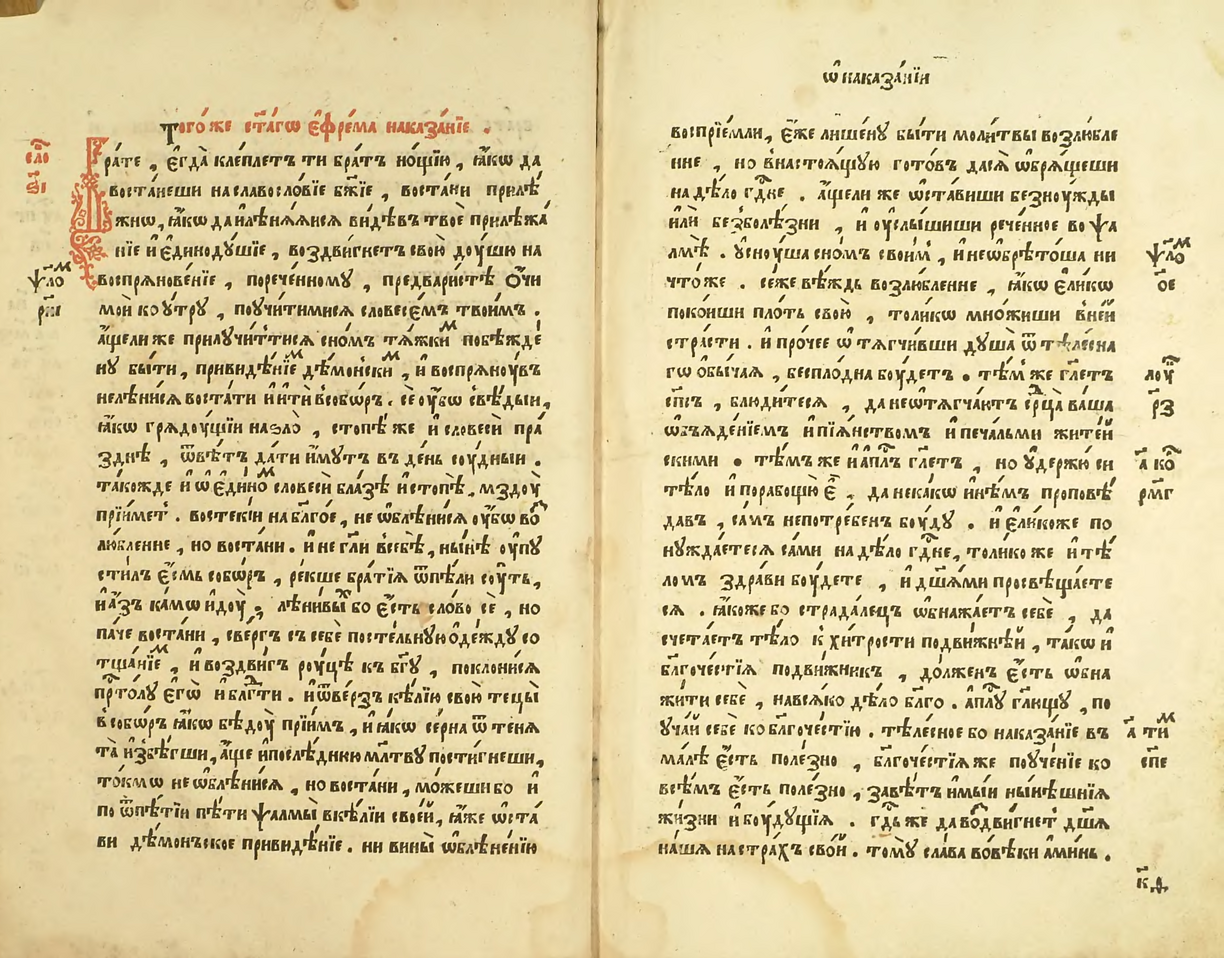 Того́же ст҃а́гѡ є҆фре́ма наказа́нїе .
сло
в҃і
Бра́те , є҆гда̀ клепле́тъ ти бра́тъ но́щїю , ꙗ҆́кѡ да
воста́неши на славосло́вїе бж҃їе , воста́ни прилѣ́
жнѡ , ꙗ҆́кѡ да и҆ лѣня́яйся ви́дѣвъ твоѐ прилѣжа́
нїе и҆ є҆динодꙋ́шїе , воздви́гнетъ свою̀ дꙋ́шꙋ на
ѱало́м
рм҃і
воспрѧнове́нїе , по рече́нномꙋ , предвари́стѣ ѻ҆́чи
моѝ ко ᲂу҆́трꙋ , поꙋчи́тимися словесє́мъ твои̑мъ .
а҆́щели же прилꙋчи́ттися сно́мъ тѧ́жким побѣжде́
нꙋ бы́ти , привидѣ́нїем де́монским , и҆ воспрѧнꙋ́въ
не лѣни́ся воста́ти и҆ и҆тѝ в собо́ръ . сѐ ᲂу҆́бѡ свѣ́дыи ,
ꙗ҆́кѡ грядꙋ́щїи на ѕло̀ , стопѣ́ же и҆ сло́веси пра́
зднѣ , ѿвѣ́тъ да́ти и҆́мꙋтъ в де́нь сꙋ́дныи .
та́кожде и҆ ѡ҆ є҆ди́ном сло́веси бла́зѣ и҆ стопѣ̀ , мздꙋ̀
прїи́мет . востекі́и на бл҃го́е , не ѡ҆блѣни́ся ᲂу҆́бѡ во
лю́бленне , но воста́ни . и҆ не гл҃и в себѣ̀ , ны́нѣ ᲂу҆пꙋ
сти́лъ є҆́смь собо́ръ , ре́кше бра́тїѧ ѿпѣ́ли сꙋ́ть ,
и҆ а҆́зъ ка́мѡ и҆дꙋ̀ ; лѣни́вых бо є҆́сть сло́во сѐ , но
па́че воста́ни , све́ргъ съ себѐ посте́льнꙋю ѻ҆де́ждꙋ со
тща́нїем , и҆ воздви́гъ рꙋ́цѣ къ бг҃ꙋ , поклони́ся
прⷭ҇то́лꙋ є҆гѡ̀ и҆ бл҃гⷣти . и҆ ѿве́рзъ кѣ́лїю свою̀ тецы̀
в собо́ръ ꙗ҆́кѡ бѣдꙋ̀ прїи́мъ , и҆ ꙗ҆́кѡ се́рна ѿ теня́
та и҆збѣ́гши , а҆́ще и҆ послѣ́днюю мл҃твꙋ пости́гнеши ,
то́кмѡ не ѡ҆блѣни́ся , но воста́ни , мо́жеши бо и҆
по ѿпѣ́тїи пѣ́ти ѱалмы̀ в кѣ́лїи свое́й , ꙗ҆́же ѡ҆ста́
ви де́монъское привидѣ́нїе . ни вины̀ ѡ҆блѣне́нїю
ѡ҆ наказа́нїи
воспрїе́мли , є҆́же лише́нꙋ бы́ти моли́твы возлю́бле
нне , но в настоѧ́щꙋю гото́въ да сѧ̀ ѡ҆брѧ́щеши
на дѣ́ло гдⷭ҇не . а҆́щели же ѡ҆ста́виши без нꙋ́жды
и҆лѝ без болѣ́зни , и҆ ᲂу҆слы́шиши рече́нное во ѱа
лмѣ̀ . ᲂу҆снꙋ́ша сно́мъ свои́м , и҆ не ѡ҆брѣто́ша ни
ѱало́м
ое
что́же . се́же вѣ́ждь возлю́бленне , ꙗ҆́кѡ є҆ли́кѡ
поко́иши пло́ть свою̀ , толи́кѡ мно́жиши в не́й
стра́сти . и҆ про́чее ѡ҆тягчи́вши дꙋша̀ ѿ тѣле́сна
гѡ ѻ҆бы́чаѧ , беспло́дна бꙋ́детъ . тѣ́м же гл҃етъ
лꙋ
рз
сп҃съ , блюди́теся , да не ѡ҆тягча́ютъ срⷣца̀ ва́ша
ѡ҆б̾яде́нїемъ и҆ пїѧ́нствомъ и҆ печа́льми жите́й
скими . тѣ́мъ же и҆ а҆пⷭ҇лъ гл҃етъ , но ᲂу҆держю̀ си
а҃ ко
рмг
тѣ́ло и҆ порабощю̀ є҆̀ , да не ка́кѡ и҆нѣ́мъ проповѣ́
давъ , са́мъ непотре́бенъ бꙋ́дꙋ . и҆ є҆ли́коже по
нꙋ́ждаетеся са́ми на дѣ́ло гдⷭ҇не , толи́ко же и҆ тѣ́
ломъ здра́ви бꙋ́дете , и҆ дш҃ями просвѣща́ете
ся . ꙗ҆́коже бо страда́лецъ ѡ҆бнажа́етъ себѐ , да
счета́етъ тѣ́ло к хи́трости подви́жнѣй , та́кѡ и҆
бл҃гоче́стїѧ подви́жникъ , до́лженъ є҆́сть ѡ҆бна
жи́ти себѐ , на вся́ко дѣ́ло бл҃го . а҆пⷭ҇лꙋ гл҃ющꙋ , по
ᲂу҆ча́й себѐ ко бл҃гоче́стїю . тѣле́сное бо наказа́нїе въ
а҃ тим
спе
ма́лѣ є҆́сть поле́зно , бл҃гоче́стїѧ же поꙋче́нїе ко
всѣ́мъ є҆́сть поле́зно , завѣ́тъ и҆мы́и ны́нѣшнїѧ
жи́зни и҆ бꙋ́дꙋщїѧ . гдⷭ҇ь же да воздви́гнет дш҃ѧ
на́шѧ на стра́хъ сво́й . томꙋ̀ сла́ва во вѣ́ки а҆ми́нь .
к҃д